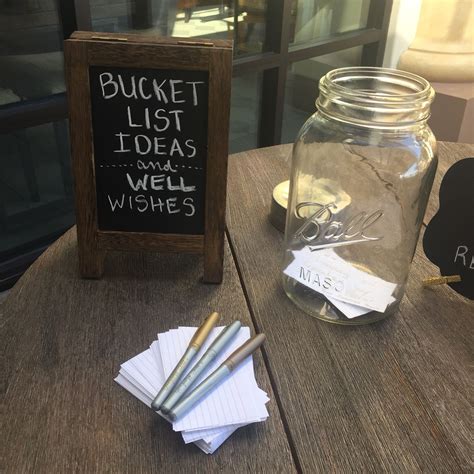 BUCKET
LIST
IDEAS
and
WELL
WISHES
Ball
MASO
RE